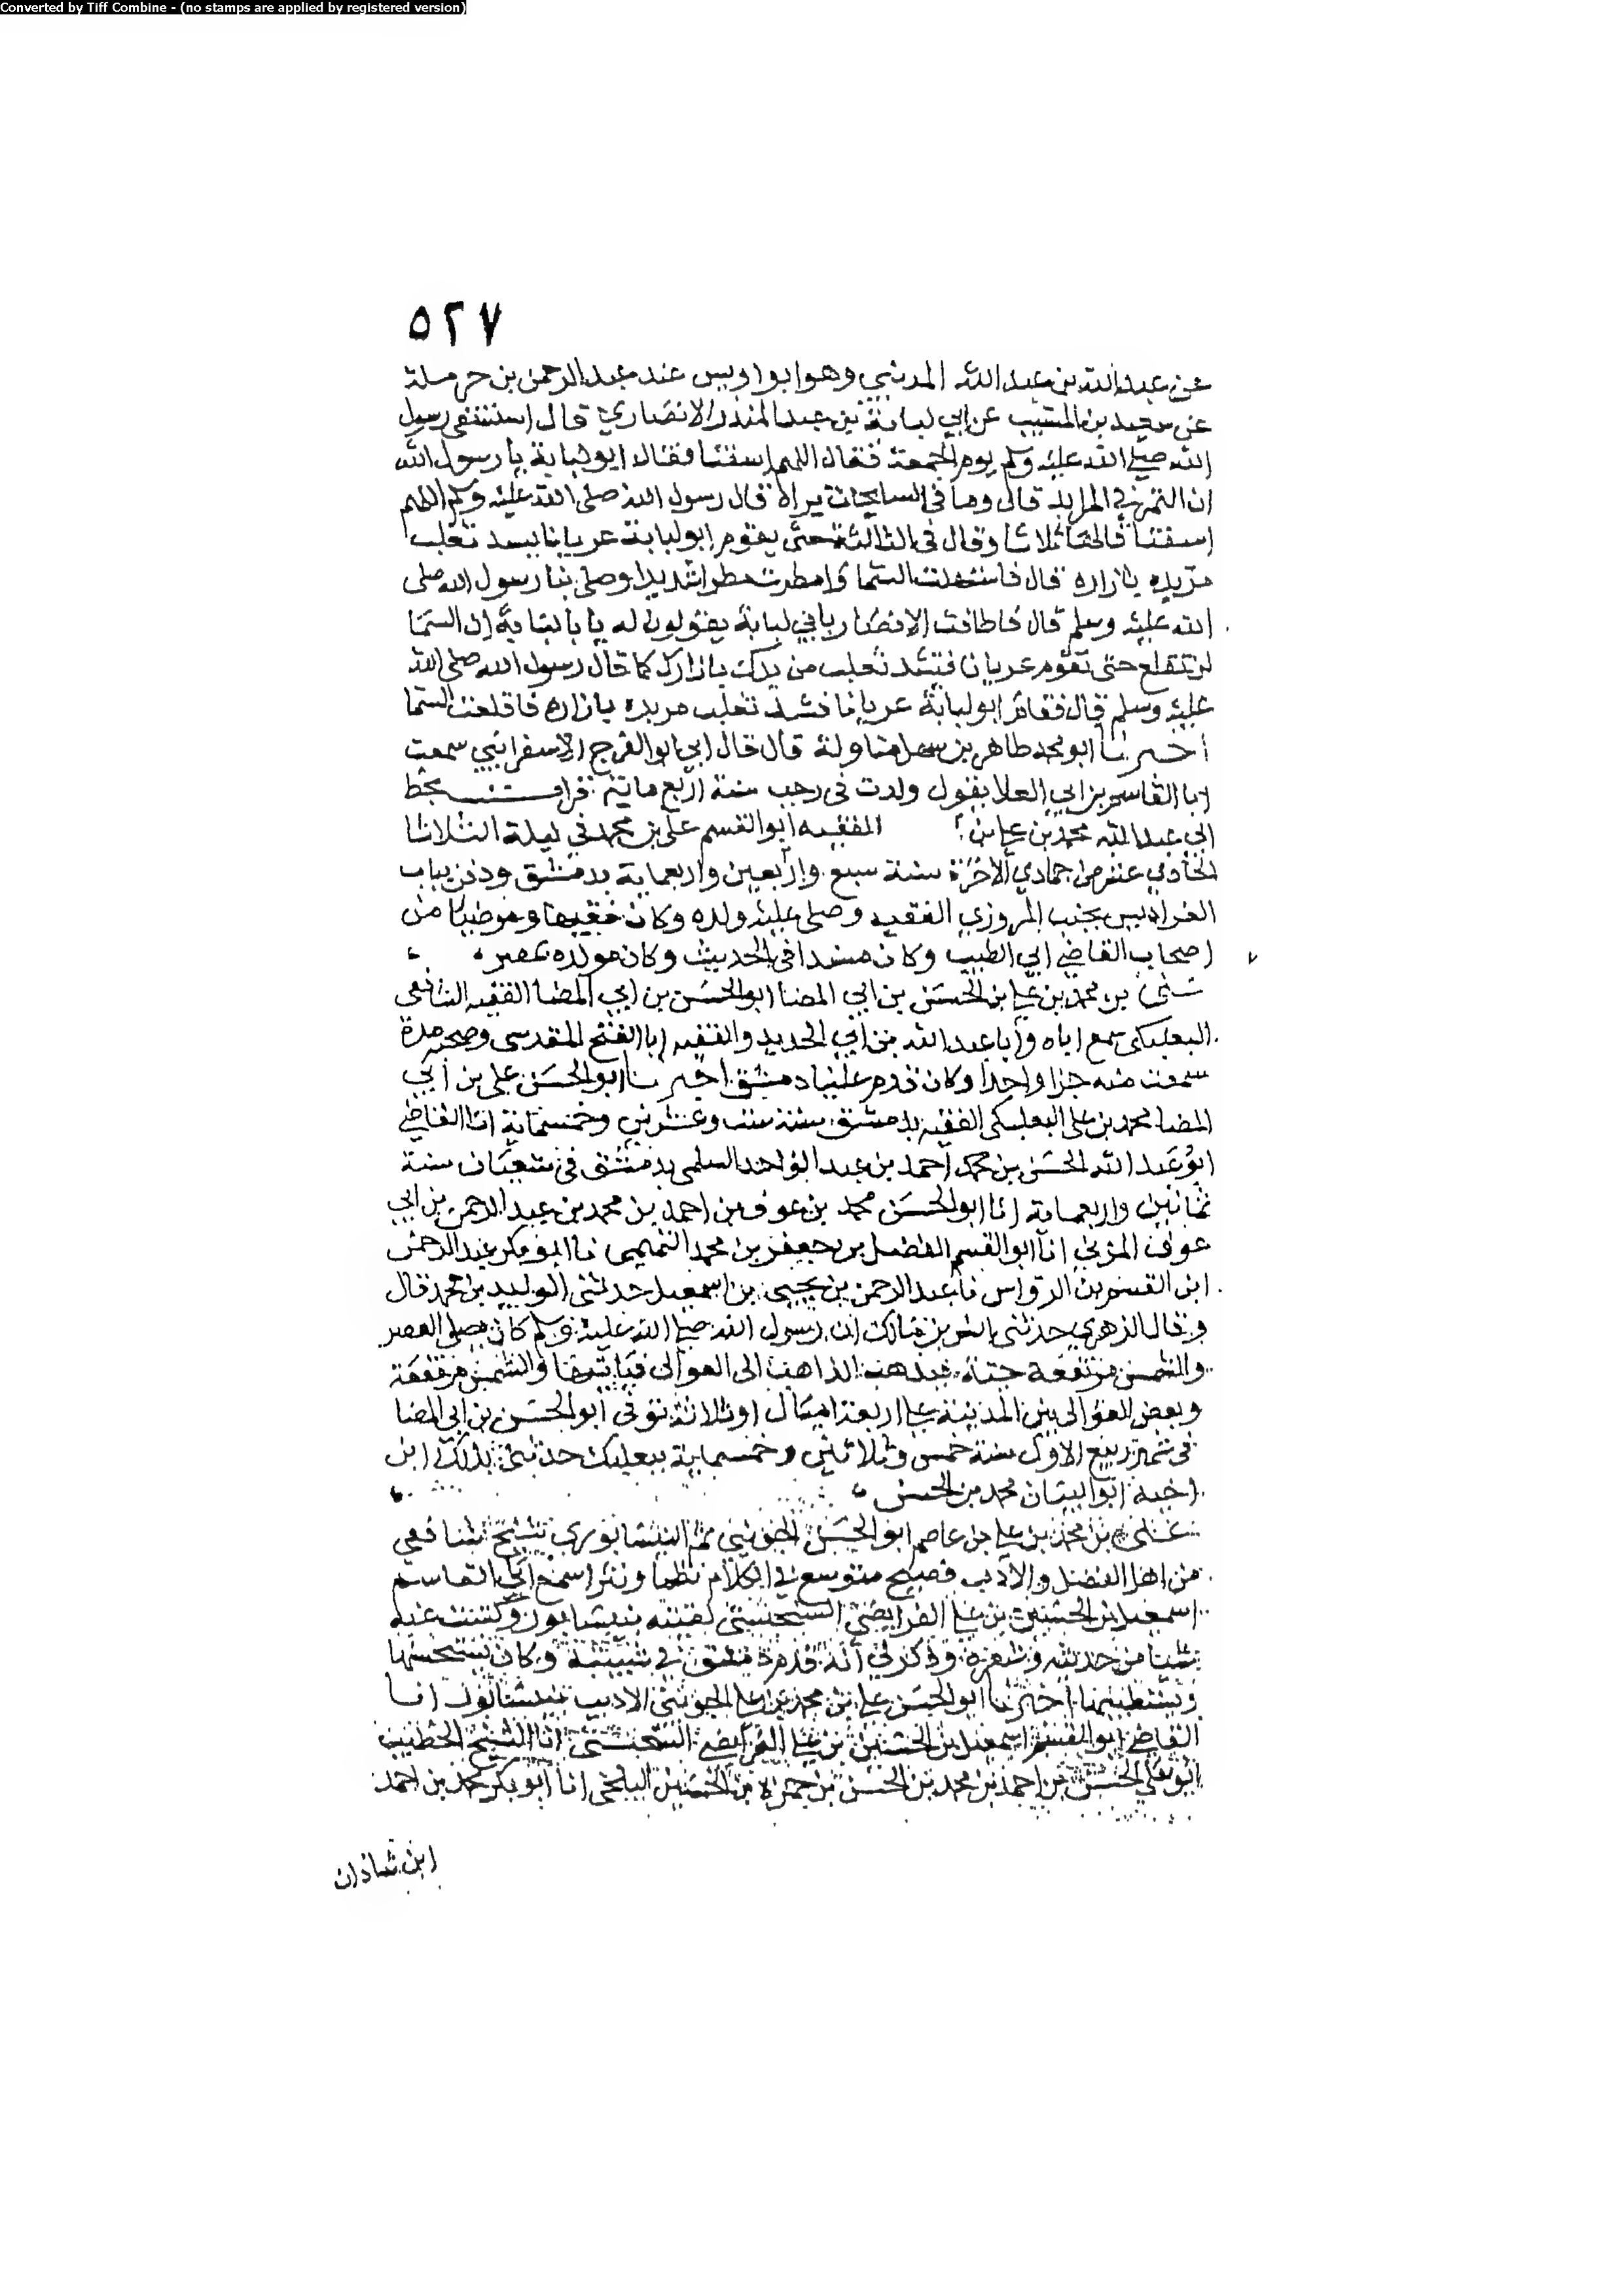 Converted by Tiff Combine - (no stamps are applied by registered version)
٥٢٧
عن عبد الله بن عبد الله المديني وهو ابو اويس عند عبد الرحمن بن حرملة
عن سعيد بن المسيب عن ابي لبابة بن عبد المنذر الانصاري قال استسقى رسول
الله صلى الله عليه وسلم يوم الجمعة فقال اللهم اسقنا فقال ابو لبابة يا رسول الله
ان التمر في المرابد قال وما في السما سحاب يراه قال رسول الله صلى الله عليه وسلم اللهم
اسقنا ثلاثا وقال في الثالثة حتى يقوم ابو لبابة عريانا يسد ثعلب
مربده بازاره قال فاستهلت السما وامطرت مطرا شديدا وصلى بنا رسول الله صلى
الله عليه وسلم قال فاطافت الانصار بابي لبابة يقولون له يا با لبابة ان السما
لن تقلع حتى تقوم عريانا فتسد ثعلب مربدك بازارك كما قال رسول الله صلى الله
عليه وسلم قال فقام ابو لبابة عريانا فسد ثعلب مربده بازاره فاقلعت السما
اخبرنا ابو محمد طاهر بن سهل مناولة قال قال ابي ابو الفرج الاسفرائيي سمعت
ابا القاسم بن ابي العلا يقول ولدت في رجب سنة اربع ماية قرات بخط
ابي عبد الله محمد بن علي بن الفقيه ابو القسم علي بن محمد في ليلة الثلاثا
الحادي عشر من جمادي الاخرة سنة سبع واربعين واربعماية بدمشق ودفن بباب
الفراديس بجنب المروزي الفقيه وصلى عليه ولده وكان فقيها ومرضيا من
اصحاب القاضي ابي الطيب وكان مسندا في الحديث وكان مولده بمصر
علي بن محمد بن علي بن الحسن بن ابي المضا ابو الحسن بن ابي المضا الفقيه الشافعي
البعلبكي سمع اباه وابا عبد الله بن ابي الحديد والفقيه ابا الفتح المقدسي وصحبه مدة
سمعت منه جزا واحدا وكان قدم علينا دمشق اخبرنا ابو الحسن علي بن ابي
المضا محمد بن علي البعلبكي الفقيه بدمشق سنة ست وعشرين وخمسماية انا القاضي
ابو عبد الله الحسن بن محمد احمد بن عبد الواحد السلمي بدمشق في شعبان سنة
ثمانين واربعماية انا ابو الحسن محمد بن عوف بن احمد بن محمد بن عبد الرحمن بن ابي
عوف المزني انا ابو القسم الفضل بن جعفر بن محمد التميمي نا ابو بكر عبد الرحمن
ابن القسم بن الرواس نا عبد الرحمن بن يحيى بن اسمعيل حدثني الوليد بن محمد قال
وقال الزهري حدثني انس بن مالك ان رسول الله صلى الله عليه وسلم كان يصلي العصر
والشمس مرتفعة حية فيذهب الذاهب الى العوالي فياتيها والشمس مرتفعة
وبعض العوالي من المدينة على اربعة اميال او ثلاثة توفي ابو الحسن بن ابي المضا
في شهر ربيع الاول سنة خمس وثلاثين وخمسماية ببعلبك حدثني بذلك ابن
اخيه ابو البيان محمد بن الحسن
علي بن محمد بن علي بن عاصم ابو الحسن الجويني ثم النيسابوري شيخ شافعي
من اهل الفضل والادب فصيح متوسع في الكلام نظما ونثرا سمع ابا القاسم
اسمعيل بن الحسين بن علي الفرايضي السنجبستي لقيته بنيسابور وكتبت عنه
شيئا من حديثه وشعره وذكر لي انه قدم دمشق في شبيبته وكان يستحسنها
ويستطيبها اخبرنا ابو الحسن علي بن محمد بن علي الجويني الاديب بنيسابور انا
القاضي ابو القسم اسمعيل بن الحسين بن علي الفرايضي السنجبستي انا الشيخ الخطيب
ابو علي الحسن بن احمد بن محمد بن الحسن بن حمزة بن الحسين البلخي انا ابو بكر محمد بن احمد
ابن شاذان